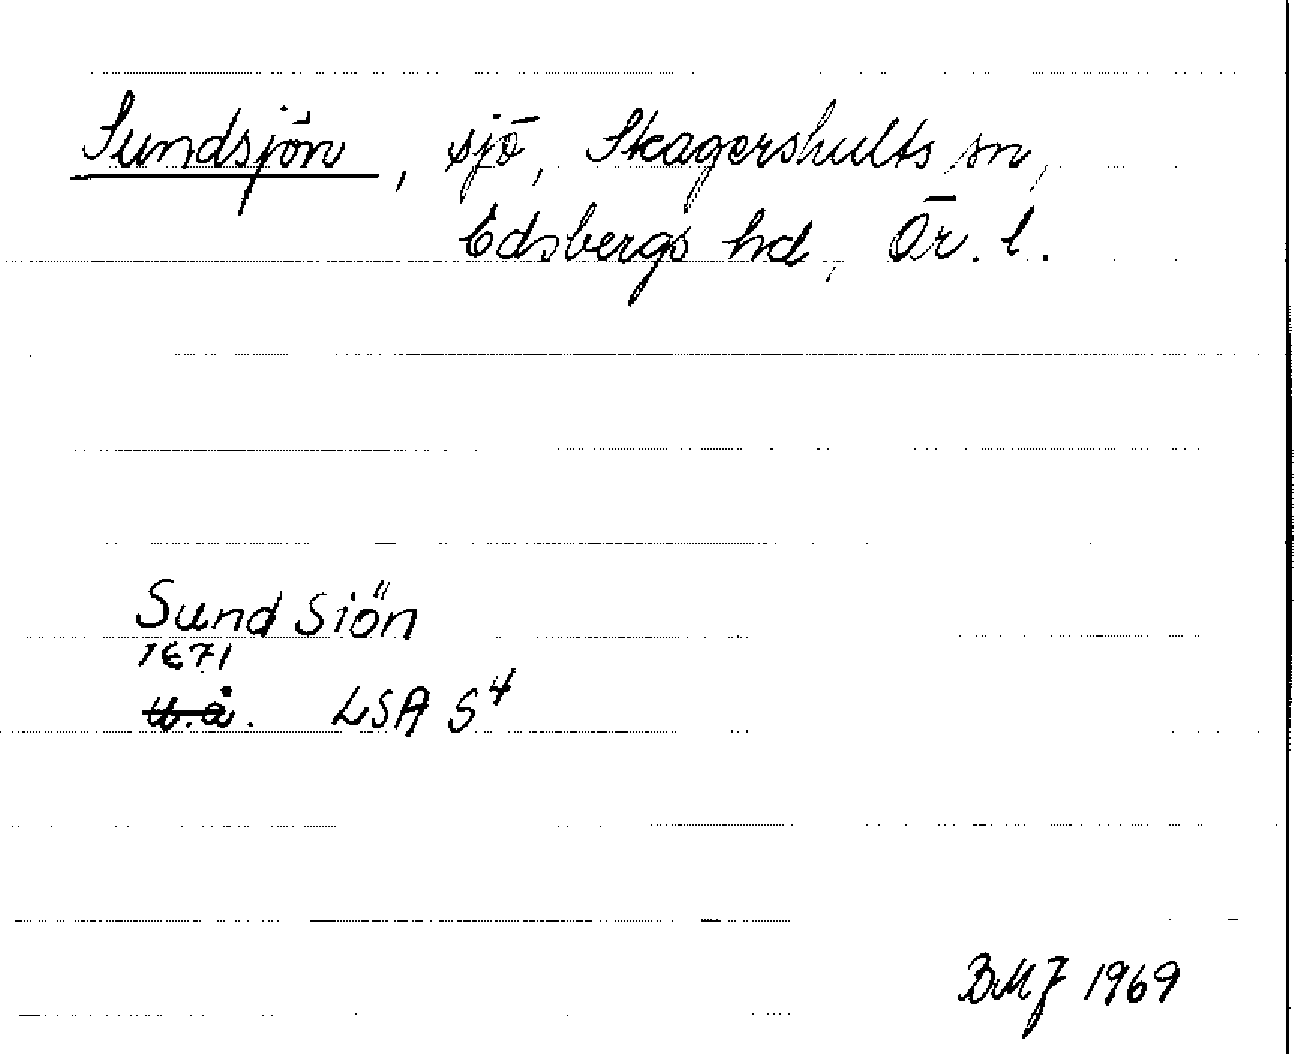 Sundsjön, sjö, Skagershults sn,
Edsbergs hd, Ör. l.
Sund Siön
1671
u.å. LSA S4
BMJ 1969